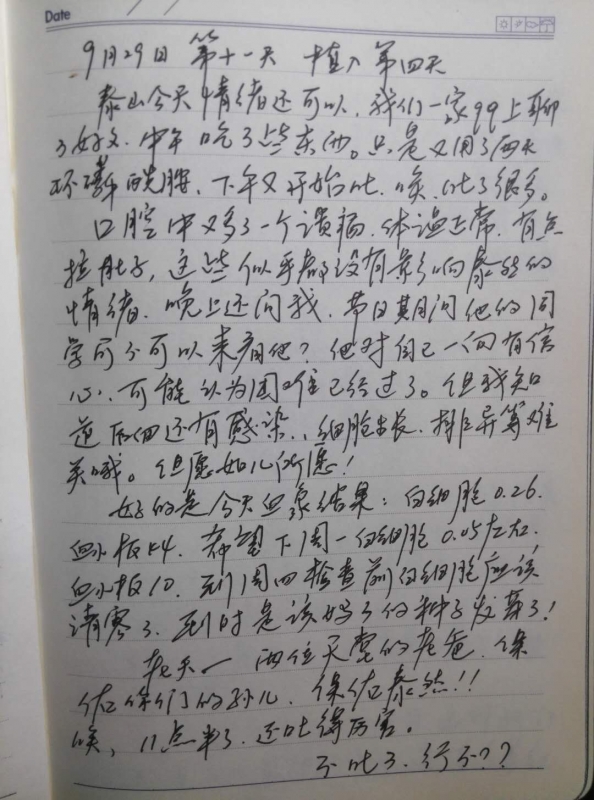 Date
9月29日 第十一天 植入第四天
泰山今天情绪还可以,我们一家qq上聊
了好久.中午吃了些东西。只是又用了两次
环磷酰胺,下午又开始吐.唉.吐了很多。
口腔中又多了一个溃疡.体温正常.有点
拉肚子,这些似乎都没有影响泰然的
情绪.晚上还问我.节日期间他的同
学可不可以来看他?他对自己一向有信
心.可能认为困难已经过了。但我知
道后面还有感染、细胞生长.排异等难
关哦。但愿如儿所愿!
好的是今天血象结果:白细胞0.26.
血小板44.希望下周一白细胞0.05左右.
血小板10.到周四检查前白细胞应该
清零了.到时是该妈妈的种子发芽了!
老天一 两位天堂的老爸.保
佑你们的孙儿.保佑泰然!!
唉,11点半了.还吐得厉害。
不吐了.行不??